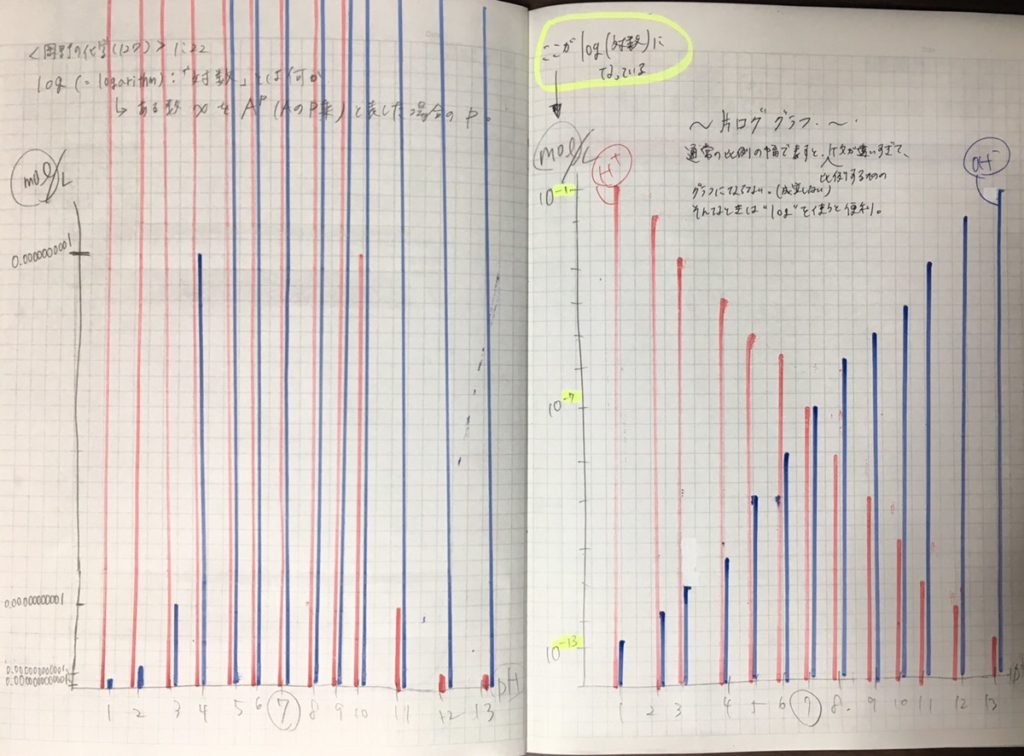 <周期の化学(120)> 1:22
log (= logarithm) : 「対数」とは何か
↳ ある数 x を A^p (Aのp乗) と表した場合の p。
mol/L
0.0000000001
0.00000000001
0.000000000001
0.0000000000001
pH
1 2 3 4 5 6 7 8 9 10 11 12 13
ここが log(対数)に
なっている
mol/L
～片ロググラフ～
通常の比例の幅で表すと、ケタが違いすぎて、
比例するものの
グラフにならない。(成立しない)
そんなときは "log" を使うと便利。
H⁺
OH⁻
10⁻¹
10⁻⁷
10⁻¹³
pH
1 2 3 4 5 6 7 8. 9 10 11 12 13